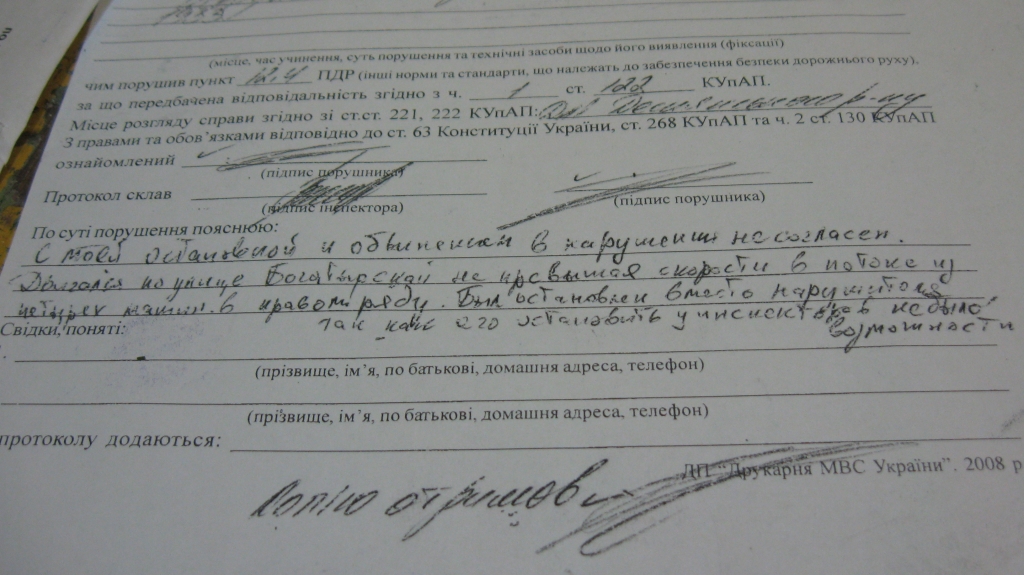 (місце, час учинення, суть порушення та технічні засоби щодо його виявлення (фіксації)
чим порушив пункт 12.4 ПДР (інші норми та стандарти, що належать до забезпечення безпеки дорожнього руху),
за що передбачена відповідальність згідно з ч. 1 ст. 122 КУпАП.
Місце розгляду справи згідно зі ст.ст. 221, 222 КУпАП: Деснянського р-ну
З правами та обов'язками відповідно до ст. 63 Конституції України, ст. 268 КУпАП та ч. 2 ст. 130 КУпАП
ознайомлений
(підпис порушника)
Протокол склав
(підпис інспектора) (підпис порушника)
По суті порушення пояснюю:
С моей остановкой и обвинением в нарушении не согласен.
Двигался по улице Богатырской не превышая скорости в потоке из
четырех машин в правом ряду. Был остановлен вместо нарушителя
так как его остановить у инспекторов не было
возможности
Свідки, поняті:
(прізвище, ім'я, по батькові, домашня адреса, телефон)
(прізвище, ім'я, по батькові, домашня адреса, телефон)
протоколу додаються:
ДП "Друкарня МВС України". 2008 р
Копію отримав